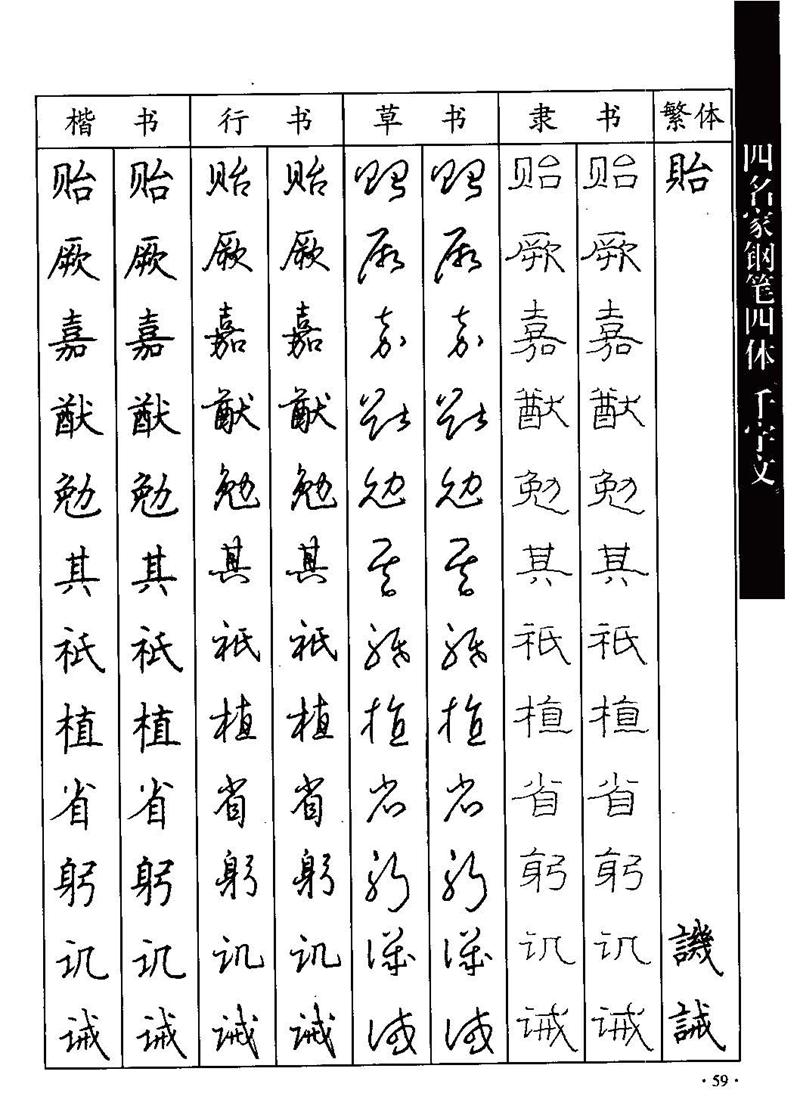 楷 书 行 书 草 书 隶 书 繁体
贻 贻 贻 贻 贻 贻 贻 贻 貽
厥 厥 厥 厥 厥 厥 厥 厥
嘉 嘉 嘉 嘉 嘉 嘉 嘉 嘉
猷 猷 猷 猷 猷 猷 猷 猷
勉 勉 勉 勉 勉 勉 勉 勉
其 其 其 其 其 其 其 其
祗 祗 祗 祗 祗 祗 祗 祗
植 植 植 植 植 植 植 植
省 省 省 省 省 省 省 省
躬 躬 躬 躬 躬 躬 躬 躬
讥 讥 讥 讥 讥 讥 讥 讥 譏
诫 诫 诫 诫 诫 诫 诫 诫 誡
四名家钢笔四体 千字文
·59·